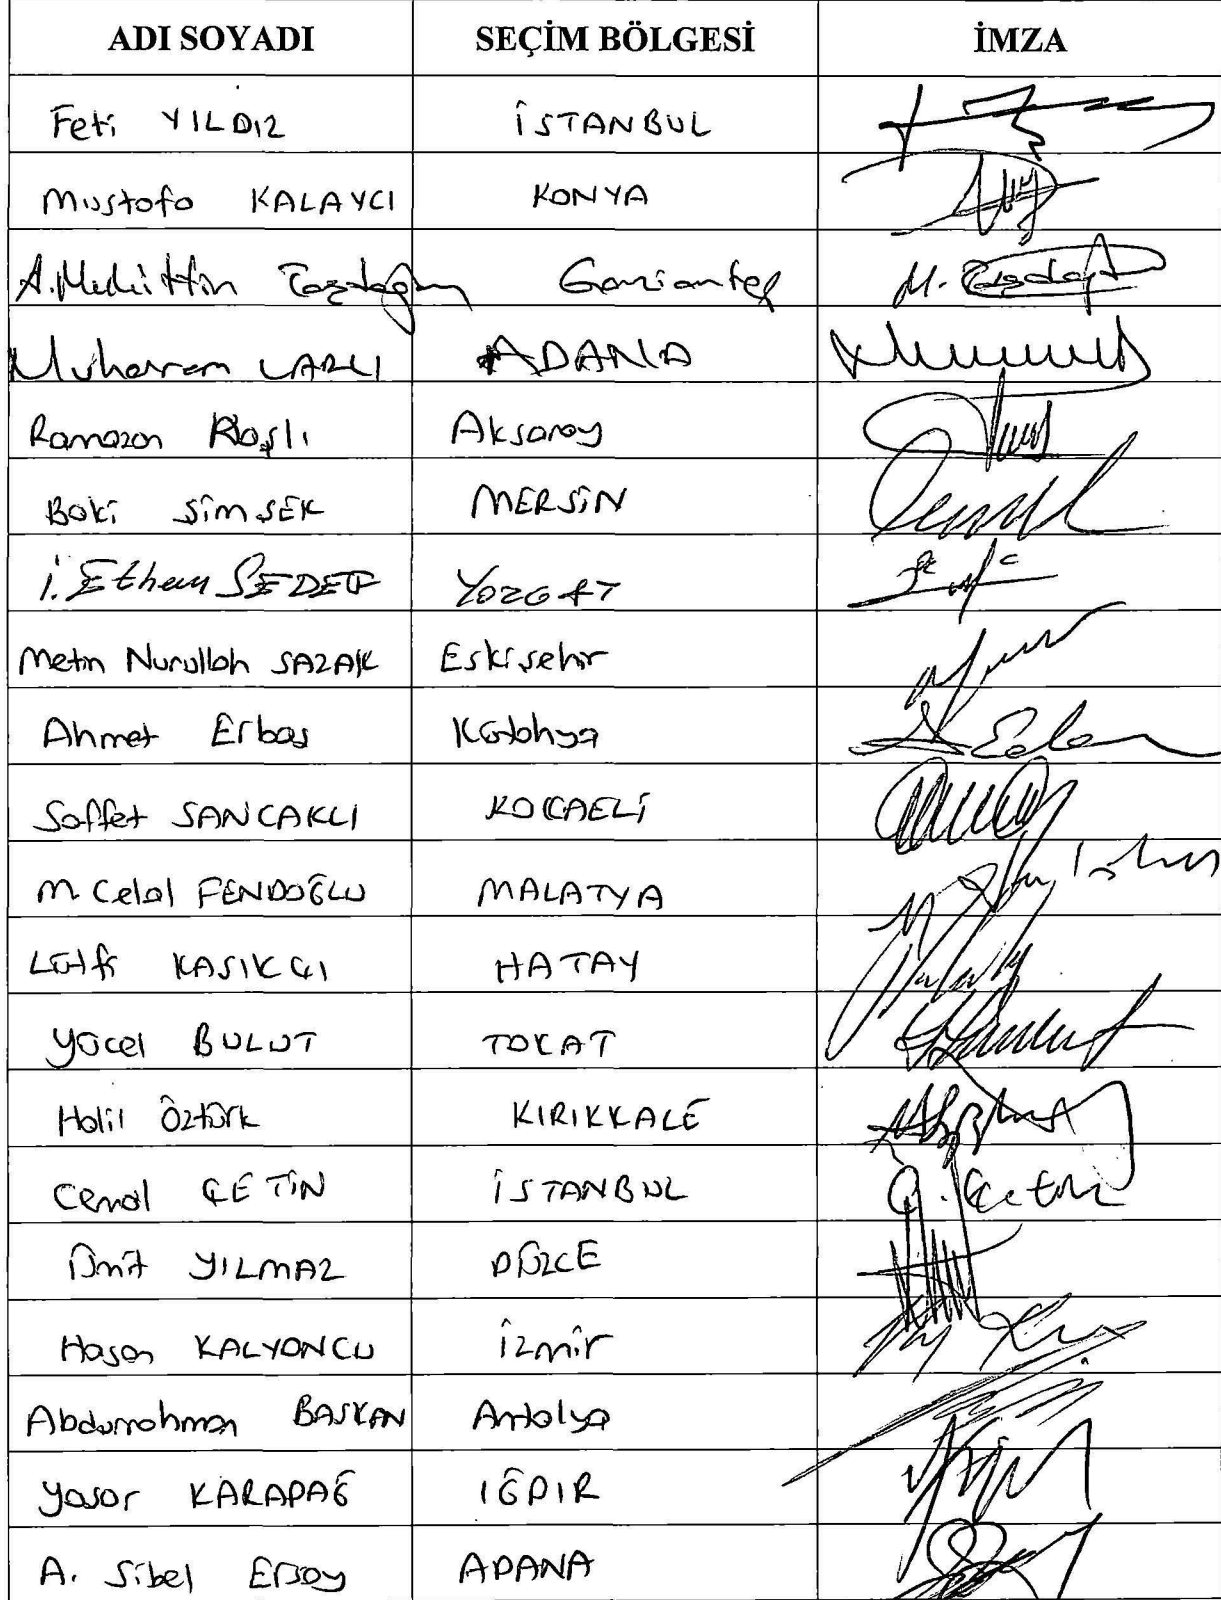 ADI SOYADI SEÇİM BÖLGESİ İMZA
Feti YILDIZ İSTANBUL
Mustafa KALAYCI KONYA
A. Muhittin Taşdoğan Gaziantep M. Taşdoğan
Muharrem VARLI ADANA
Ramazan Kaşlı Aksaray
Baki ŞİMŞEK MERSİN
İ. Ethem SEDEF YOZGAT
Metin Nurullah SAZAK Eskişehir
Ahmet Erbaş Kütahya
Saffet SANCAKLI KOCAELİ
M. Celal FENDOĞLU MALATYA
Lütfi KAŞIKÇI HATAY
Yücel BULUT TOKAT
Halil Öztürk KIRIKKALE
Cemal ÇETİN İSTANBUL Ç. Çetin
Ümit YILMAZ DÜZCE
Hasan KALYONCU İzmir
Abdurrahman BAŞKAN Antalya
Yaşar KARADAĞ IĞDIR
A. Sibel Ersoy ADANA